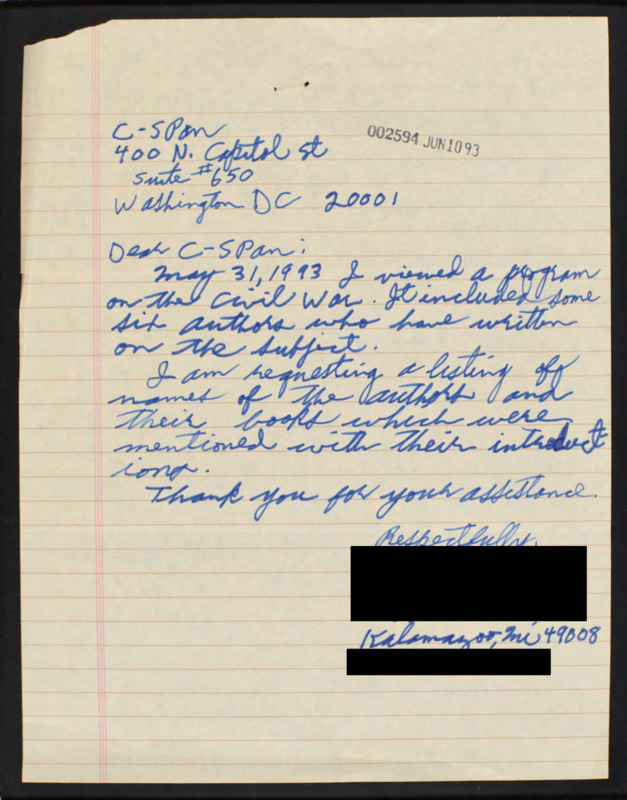 C-SPan
400 N. Capitol St
Suite #650
Washington DC 20001
002594 JUN 10 93
Dear C-SPan:
May 31, 1993 I viewed a program
on the Civil War. It included some
six authors who have written
on the subject.
I am requesting a listing of
names of the authors and
their books which were
mentioned with their introduct
ions.
Thank you for your assistance.
Respectfully,
Kalamazoo, Mi 49008